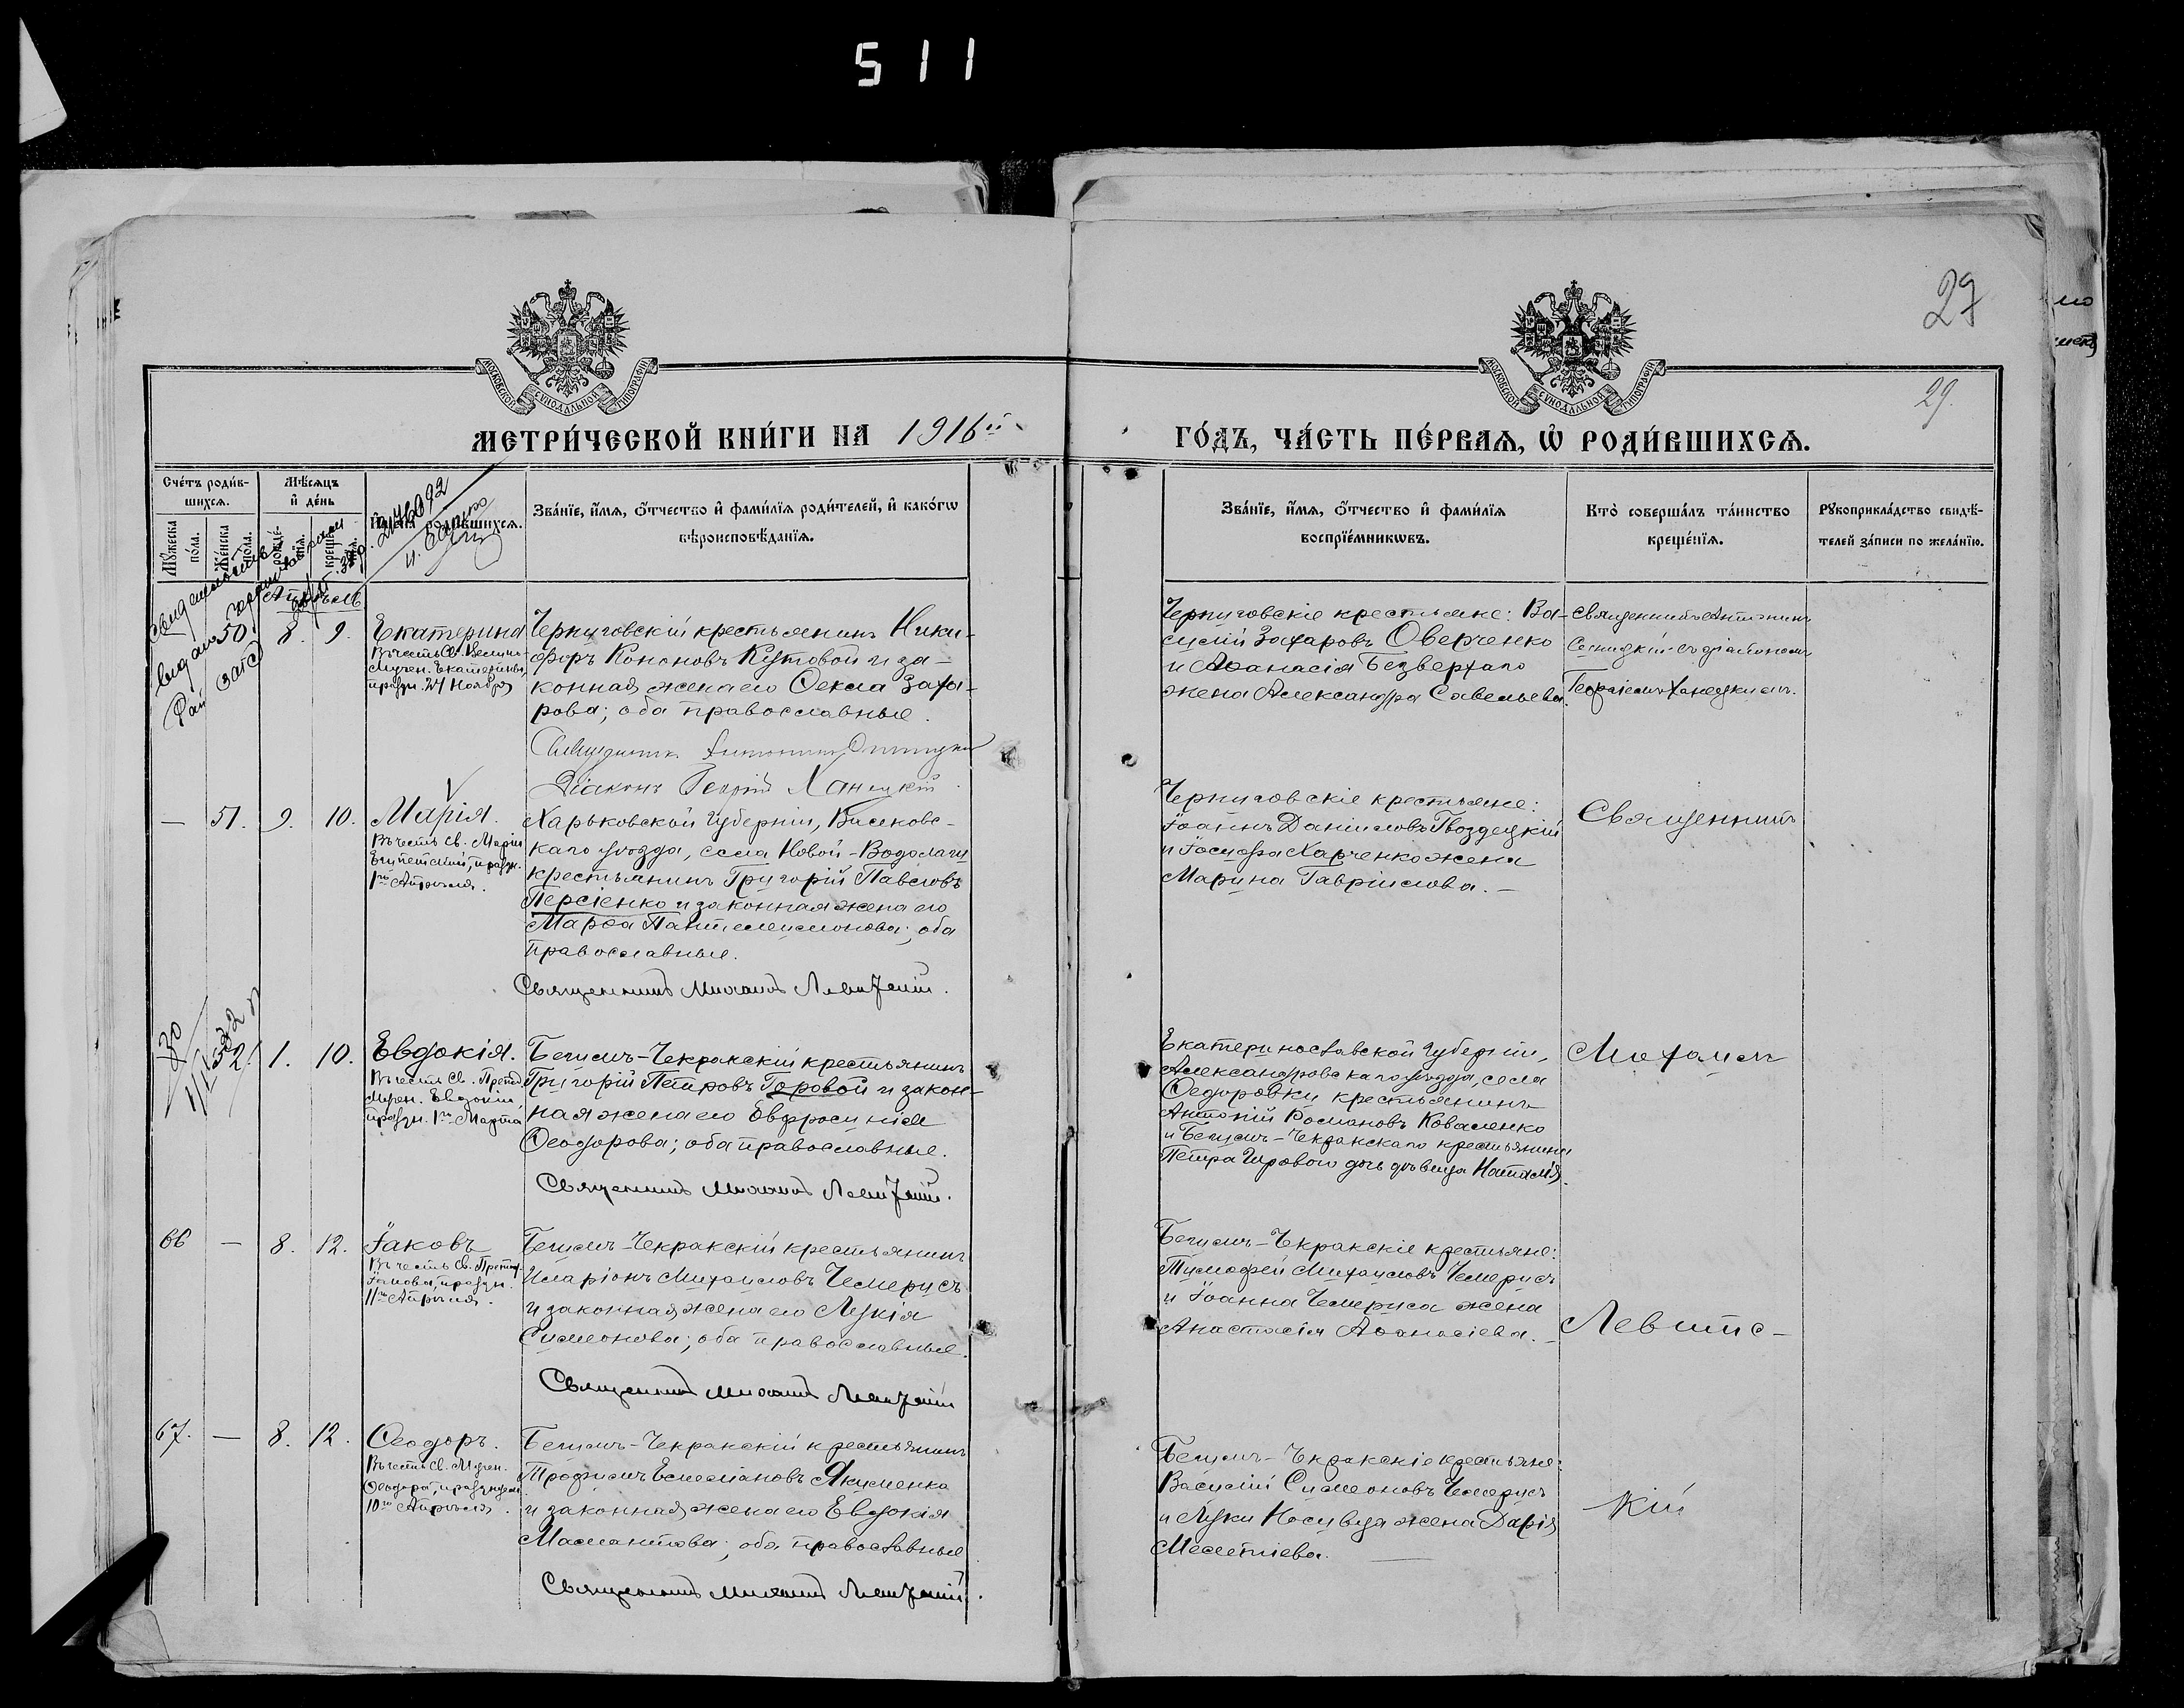 511
27
29.
МОСКОВСКОЙ СУНОДАЛЬНОЙ ТИПОГРАФІИ
МОСКОВСКОЙ СУНОДАЛЬНОЙ ТИПОГРАФІИ
МЕТРИ́ЧЕСКОЙ КНИ́ГИ НА 1916й
ГО́ДЪ, ЧА́СТЬ ПЕ́РВАѦ, Ѡ҆ РОДИ́ВШИХСѦ.
Сче́тъ роди́в-
шихсѧ.
Мꙋ́жеска по́ла.
Же́нска по́ла.
Мѣ́сѧцъ
и҆ де́нь
рожде́-нїѧ.
креще́-нїѧ.
И҆мена̀ роди́вшихсѧ.
Зва́нїе, и҆́мѧ, ѻ҆́тчество и҆ фами́лїѧ роди́телей, и҆ како́гѡ
вѣроисповѣ́данїѧ.
Зва́нїе, и҆́мѧ, ѻ҆́тчество и҆ фами́лїѧ
воспрїе́мникѡвъ.
Кто̀ соверша́лъ та́инство
креще́нїѧ.
Рꙋкоприкла́дство свидѣ́-
телей за́писи по жела́нїю.
Апрѣль
50. 8. 9. Екатерина
Въ честь Св. Велико-
Мучен. Екатерины,
праздн. 24 Ноября
Черниговскій крестьянинъ Ники-
форъ Кононовъ Кутовой и за-
конная жена его Ѳекла Заха-
рова; оба православные.
Діаконъ Георгій Ханецкій
Черниговскіе крестьяне: Ва-
силій Захаровъ Оверченко
и Аѳанасія Безверхаго
жена Александра Савельева.
Священникъ Антонинъ
съ діакономъ
Георгіемъ Ханецкимъ.
— 51. 9. 10. Марія.
Въ честь Св. Маріи
Египетской, праздн.
1го Апрѣля.
Харьковской губерніи, Валковс-
каго уѣзда, села Новой-Водолаги
крестьянинъ Григорій Павловъ
Персіенко и законная жена его
Марѳа Пантелеимонова; оба
православные.
Священникъ Михаилъ Левитскій.
Черниговскіе крестьяне:
Іоаннъ Даніиловъ Гвоздецкій
и Іосифа Харченко жена
Марина Гавріилова. —
Священникъ
52. 1. 10. Евдокія.
Въ честь Св. Препод.
Мучен. Евдокіи,
праздн. 1го Марта
Бегимъ-Чекракскій крестьянинъ
Григорій Петровъ Горовой и закон-
ная жена его Евфросинія
Ѳеодорова; оба православные.
Священникъ Михаилъ Левитскій.
Екатеринославской губерніи,
Александровскаго уѣзда, села
Ѳедоровки крестьянинъ
Антоній Романовъ Коваленко
и Бегимъ-Чекракскаго крестьянина
Петра Горового дочь дѣвица Наталія.
Михаилъ
66 — 8. 12. Іаковъ
Въ честь Св. Препод.
Іакова, праздн.
11го Апрѣля.
Бегимъ-Чекракскій крестьянинъ
Иларіонъ Михаиловъ Чемерисъ
и законная жена его Лукія
Симеонова; оба православные.
Священникъ Михаилъ Левитскій
Бегимъ-Чекракскіе крестьяне:
Тимофей Михаиловъ Чемерисъ
и Іоанна Чемериса жена
Анастасія Аѳанасіева. —
Левитс-
67. — 8. 12. Ѳеодоръ.
Въ честь Св. Мучен.
Ѳеодора, празднуем.
10го Апрѣля.
Бегимъ-Чекракскій крестьянинъ
Трофимъ Емеліановъ Якименко
и законная жена его Евдокія
Маслантова; оба православные
Священникъ Михаилъ Левитскій.
Бегимъ-Чекракскіе крестьяне:
Василій Симеоновъ Чемерисъ
и Луки Носивца жена Дарія
Мелетіева. —
кій